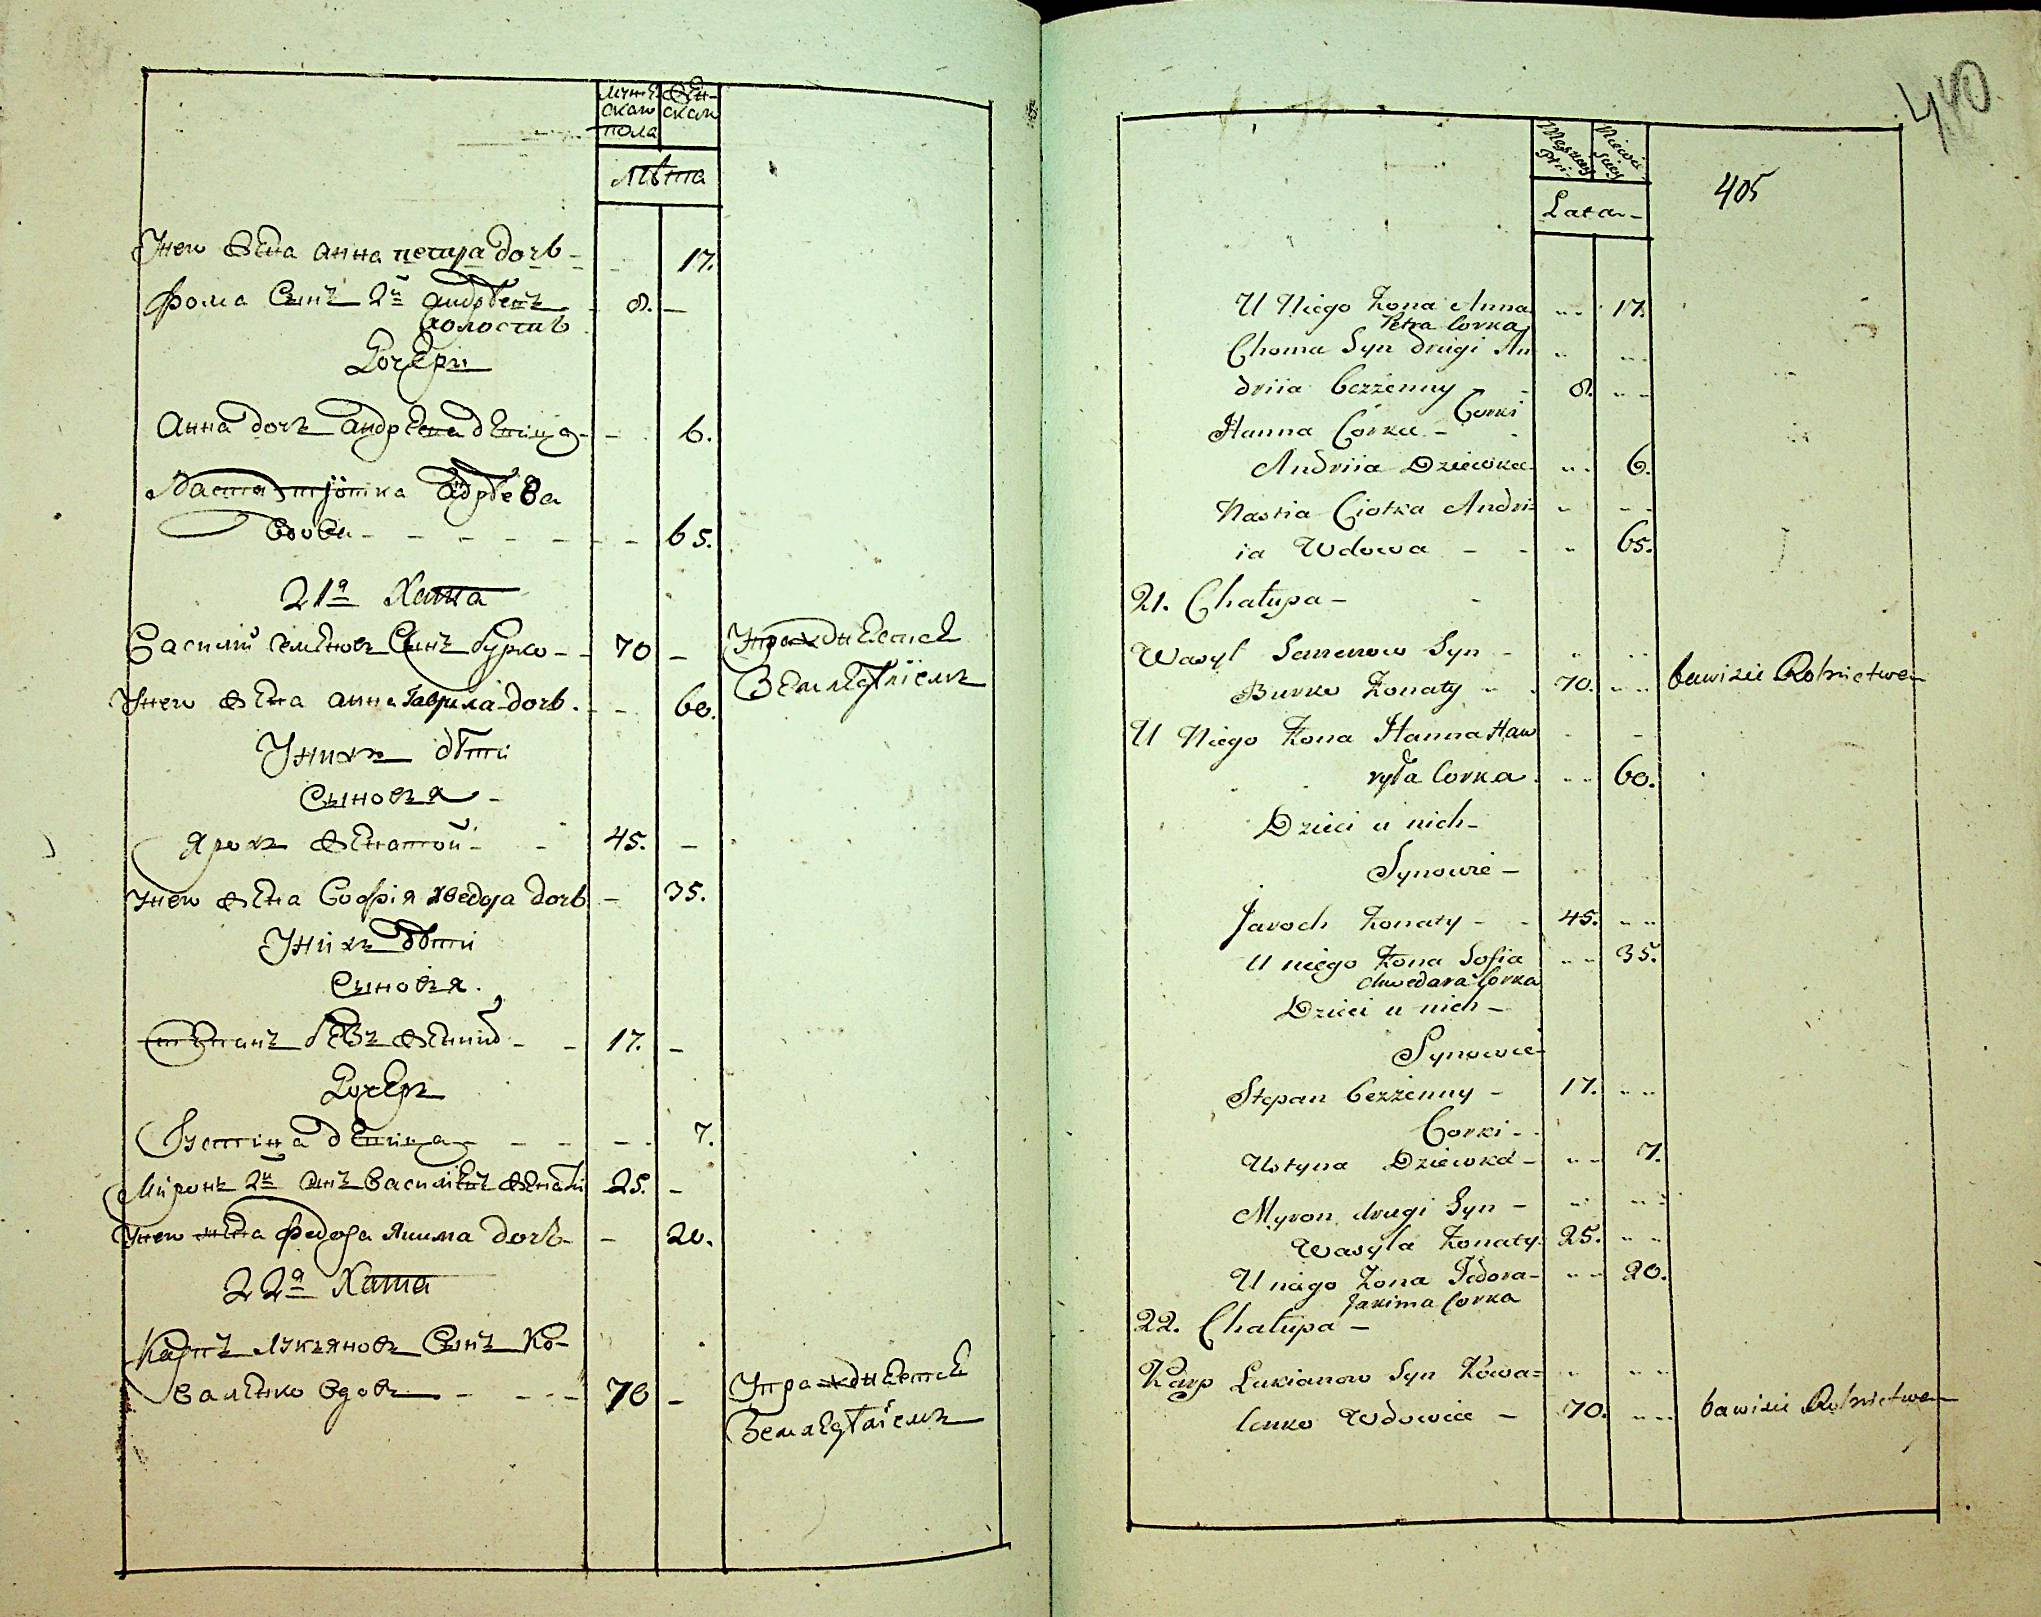 мужескаго пола
женскаго
лѣта
Унего жена анна петра дочь 17.
фома Сынъ 2й андрѣевъ 8.
холостъ
Дочери
Анна дочь андреева девица 6.
Настя тіотка андрѣева
вдова 65.
21я Хата
Василій семеновъ Сынъ бурко 70
Упражняется
Земледѣліемъ
Унего жена анна Гаврила дочь 60.
Унихъ дѣти
Сыновья
Ярохъ женатой 45.
Унего жена Софія хведора дочь 35.
Унихъ дѣти
Сыновья.
Степанъ безъ жены 17.
Дочерь
Устина девица 7.
Миронъ 2й сынъ василіевъ женатъ 25.
Унего жена федора якима дочь 20.
22я Хата
Карпъ лукьяновъ Сынъ Ко-
валенко вдовъ 70
Упражняется
Земледѣліемъ
440
405
Męskiey Płci
Niewieściey
Lata
U Niego Żona Anna 17.
Petra Corka
Choma Syn drugi An
driia bezżenny 8.
Corki
Hanna Córka
Andriia Dziewka 6.
Nastia Ciotka Andri=
ia Wdowa 65.
21. Chałupa
Wasyl Semenow Syn
Burko Żonaty 70. bawi się Rolnictwem
U Niego Żona Hanna Haw
ryła Corka 60.
Dzieci u nich
Synowie
Jaroch Żonaty 45.
U niego Żona Sofia 35.
Chwedara Corka
Dzieci u nich
Synowie
Stepan bezżenny 17.
Corki
Ustyna Dziewka 7.
Myron drugi Syn
Wasyla Żonaty 25.
U niego Żona Fedora 20.
Jakima Corka
22. Chałupa
Karp Lukianow Syn Kowa=
lenko Wdowiec 70. bawi się Rolnictwem